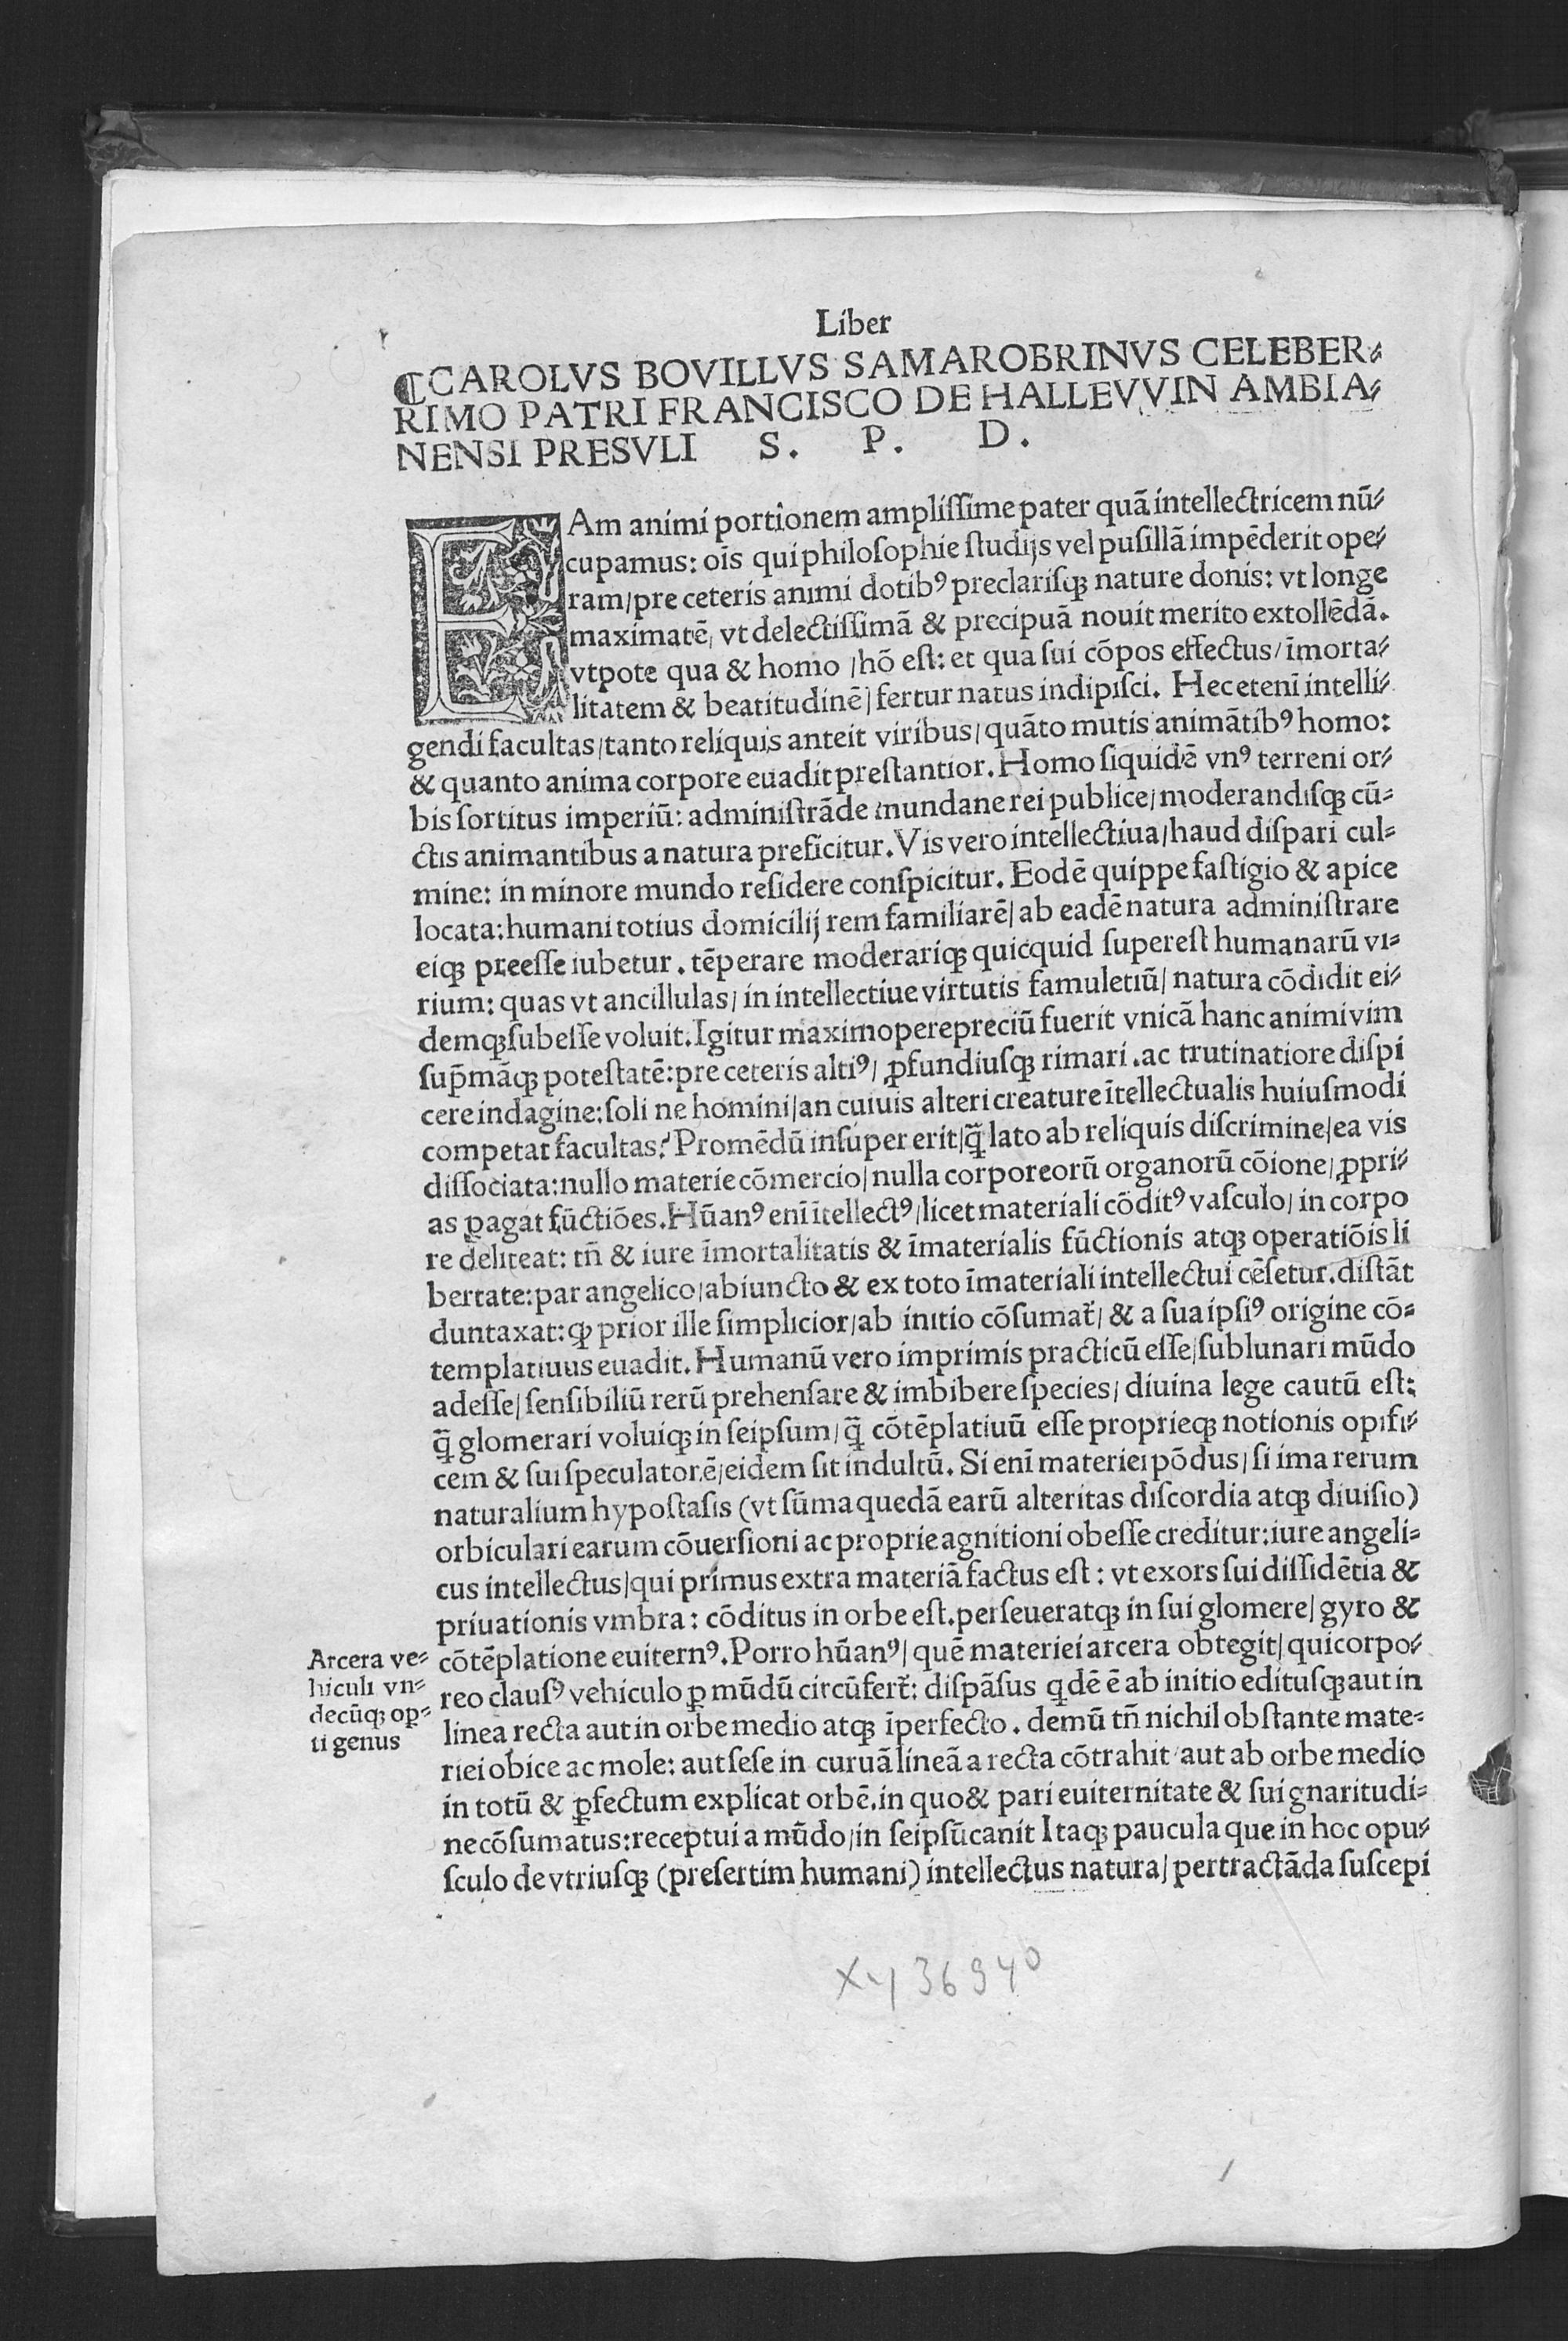 Liber
⁋CAROLVS BOVILLVS SAMAROBRINVS CELEBER⸗
RIMO PATRI FRANCISCO DE HALLEVVIN AMBIA⸗
NENSI PRESVLI S. P. D.
EAm animi portionem ampliſſime pater quã intellectricem nũ⸗
cupamus: oĩs qui philoſophie ſtudijs vel puſillã impẽderit ope⸗
ram/pre ceteris animi dotibꝰ preclariſqꝫ nature donis: vt longe
maximatẽ/ vt delectiſſimã & precipuã nouit merito extollẽdã.
vtpote qua & homo /hõ eſt: et qua ſui cõpos effectus/ ĩmorta⸗
litatem & beatitudinẽ/ fertur natus indipiſci. Hec etenĩ intelli⸗
gendi facultas/tanto reliquis anteit viribus/quãto mutis animãtibꝰ homo:
& quanto anima corpore euadit preſtantior. Homo ſiquidẽ vnꝰ terreni or⸗
bis ſortitus imperiũ: adminiſtrãde mundane rei publice/moderandiſqꝫ cũ⸗
ctis animantibus a natura preficitur. Vis vero intellectiua/haud diſpari cul⸗
mine: in minore mundo reſidere conſpicitur. Eodẽ quippe faſtigio & apice
locata: humani totius domicilij rem familiarẽ/ ab eadẽ natura adminiſtrare
eiqꝫ preeſſe iubetur. tẽperare moderariqꝫ quicquid ſupereſt humanarũ vi⸗
rium: quas vt ancillulas/ in intellectiue virtutis famuletiũ/ natura cõdidit ei⸗
demqꝫ ſubeſſe voluit. Igitur maximopere preciũ fuerit vnicã hanc animi vim
ſup̃mãqꝫ poteſtatẽ: pre ceteris altiꝰ/ ꝓfundiuſqꝫ rimari. ac trutinatiore diſpi
cere indagine: ſoli ne homini/an cuiuis alteri creature ĩtellectualis huiuſmodi
competat facultas? Promẽdũ inſuper erit/q̃ lato ab reliquis diſcrimine/ea vis
diſſociata: nullo materie cõmercio/nulla corporeorũ organorũ cõione/ ꝓpri⸗
as ꝑagat fũctiões. Hũanꝰ enĩ ĩtellectꝰ/licet materiali cõditꝰ vaſculo/ in corpo
re deliteat: tñ & iure ĩmortalitatis & ĩmaterialis fũctionis atqꝫ operatiõis li
bertate: par angelico/abiuncto & ex toto ĩmateriali intellectui cẽſetur. diſtãt
duntaxat: ꝙ prior ille ſimplicior/ab initio cõſumat᷑/ & a ſua ipſiꝰ origine cõ⸗
templatiuus euadit. Humanũ vero imprimis practicũ eſſe/ſublunari mũdo
adeſſe/ſenſibiliũ rerũ prehenſare & imbibere ſpecies/ diuina lege cautũ eſt:
q̃ glomerari voluiqꝫ in ſeipſum/q̃ cõtẽplatiuũ eſſe proprieqꝫ notionis opifi⸗
cem & ſui ſpeculatorẽ/eidem ſit indultũ. Si enĩ materiei põdus/ſi ima rerum
naturalium hypoſtaſis (vt ſũma quedã earũ alteritas diſcordia atqꝫ diuiſio)
orbiculari earum cõuerſioni ac proprie agnitioni obeſſe creditur: iure angeli⸗
cus intellectus/qui primus extra materiã factus eſt: vt exors ſui diſſidẽtia &
priuationis vmbra: cõditus in orbe eſt. perſeueratqꝫ in ſui glomere/ gyro &
cõtẽplatione euiternꝰ. Porro hũanꝰ/ quẽ materiei arcera obtegit/ qui corpo⸗
reo clauſꝰ vehiculo ꝑ mũdũ circũfert᷑: diſpãſus qdẽ ẽ ab initio edituſqꝫ aut in
linea recta aut in orbe medio atqꝫ ĩperfecto. demũ tñ nichil obſtante mate⸗
riei obice ac mole: aut ſeſe in curuã lineã a recta cõtrahit aut ab orbe medio
in totũ & ꝑfectum explicat orbẽ. in quo & pari euiternitate & ſui gnaritudi⸗
ne cõſumatus: receptui a mũdo/in ſeipſũ canit Itaqꝫ paucula que in hoc opu⸗
ſculo de vtriuſqꝫ (preſertim humani) intellectus natura/ pertractãda ſuscepi
Arcera ve⸗
hiculi vn⸗
decũqꝫ oꝑ⸗
ti genus